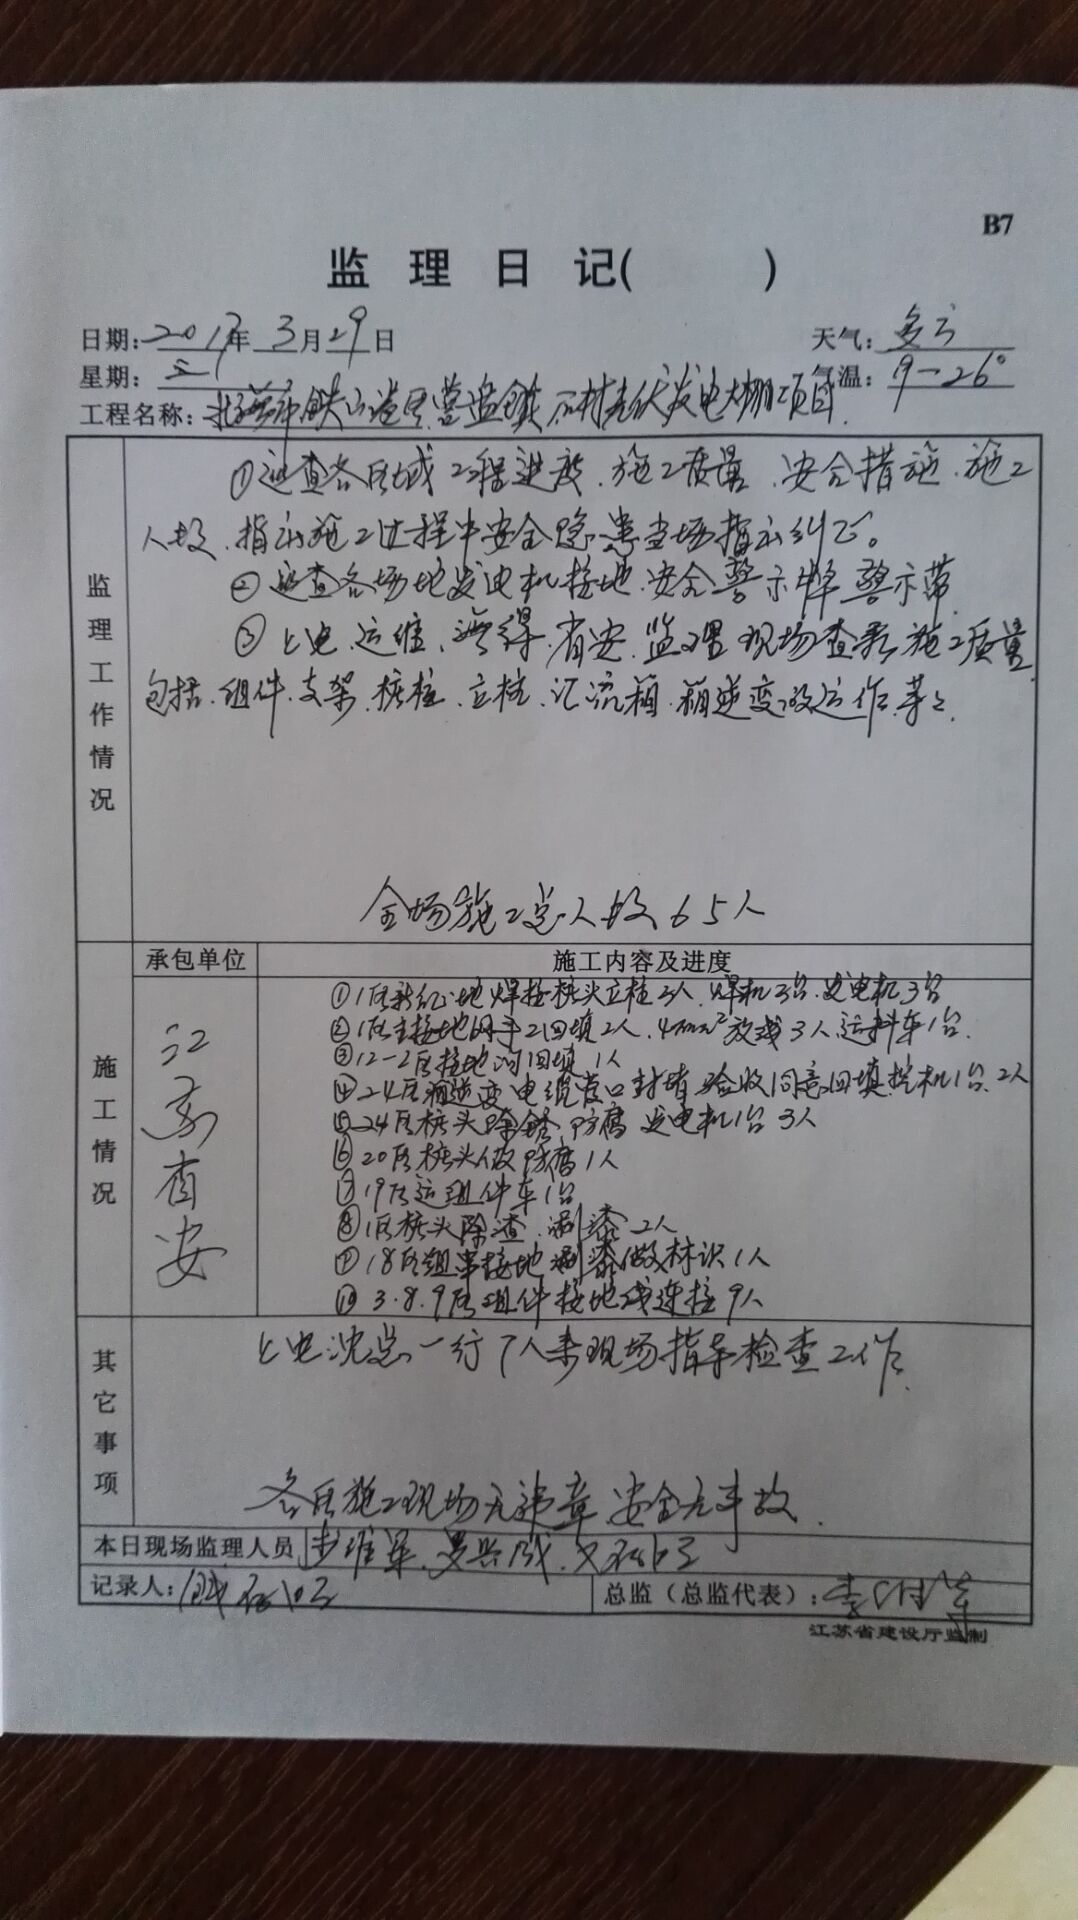 B7
监理日记( )
日期: 2017年 3月29日 天气: 多云
星期: 三 气温: 9-26°
工程名称: 北海市铁山港区营盘镇 石村光伏发电大棚项目
监理工作情况
①巡查各区域工程进度、施工质量、安全措施、施工
人数、指示施工过程中安全隐患当场指示纠正。
②巡查各场地发电机接地、安全警示牌警示带
③上电、运维、 省安、监理现场查看施工质量
包括、组件、支架、桩柱、立柱、汇流箱、箱逆变 运作等等.
全场施工总人数65人
施工情况
承包单位 施工内容及进度
江苏省安
①1区 地焊接桩头立柱3人、焊机3台、发电机3台
②1区主接地网手工回填2人、4mm²放线3人运料车1台.
③12-2区接地沟回填1人
④24区箱逆变电缆管口封堵验收同意回填挖机1台、2人
⑤24区桩头除锈、防腐发电机1台3人
⑥20区桩头做防腐1人
⑦19区运组件车1台
⑧1区桩头除渣、刷漆2人
⑨18区组串接地刷漆做标识1人
⑩3.8.9区组件接地线连接9人
其它事项
上电沈总一行7人来现场指导检查工作.
各区施工现场无违章安全无事故.
本日现场监理人员
记录人:
总监(总监代表):
江苏省建设厅监制